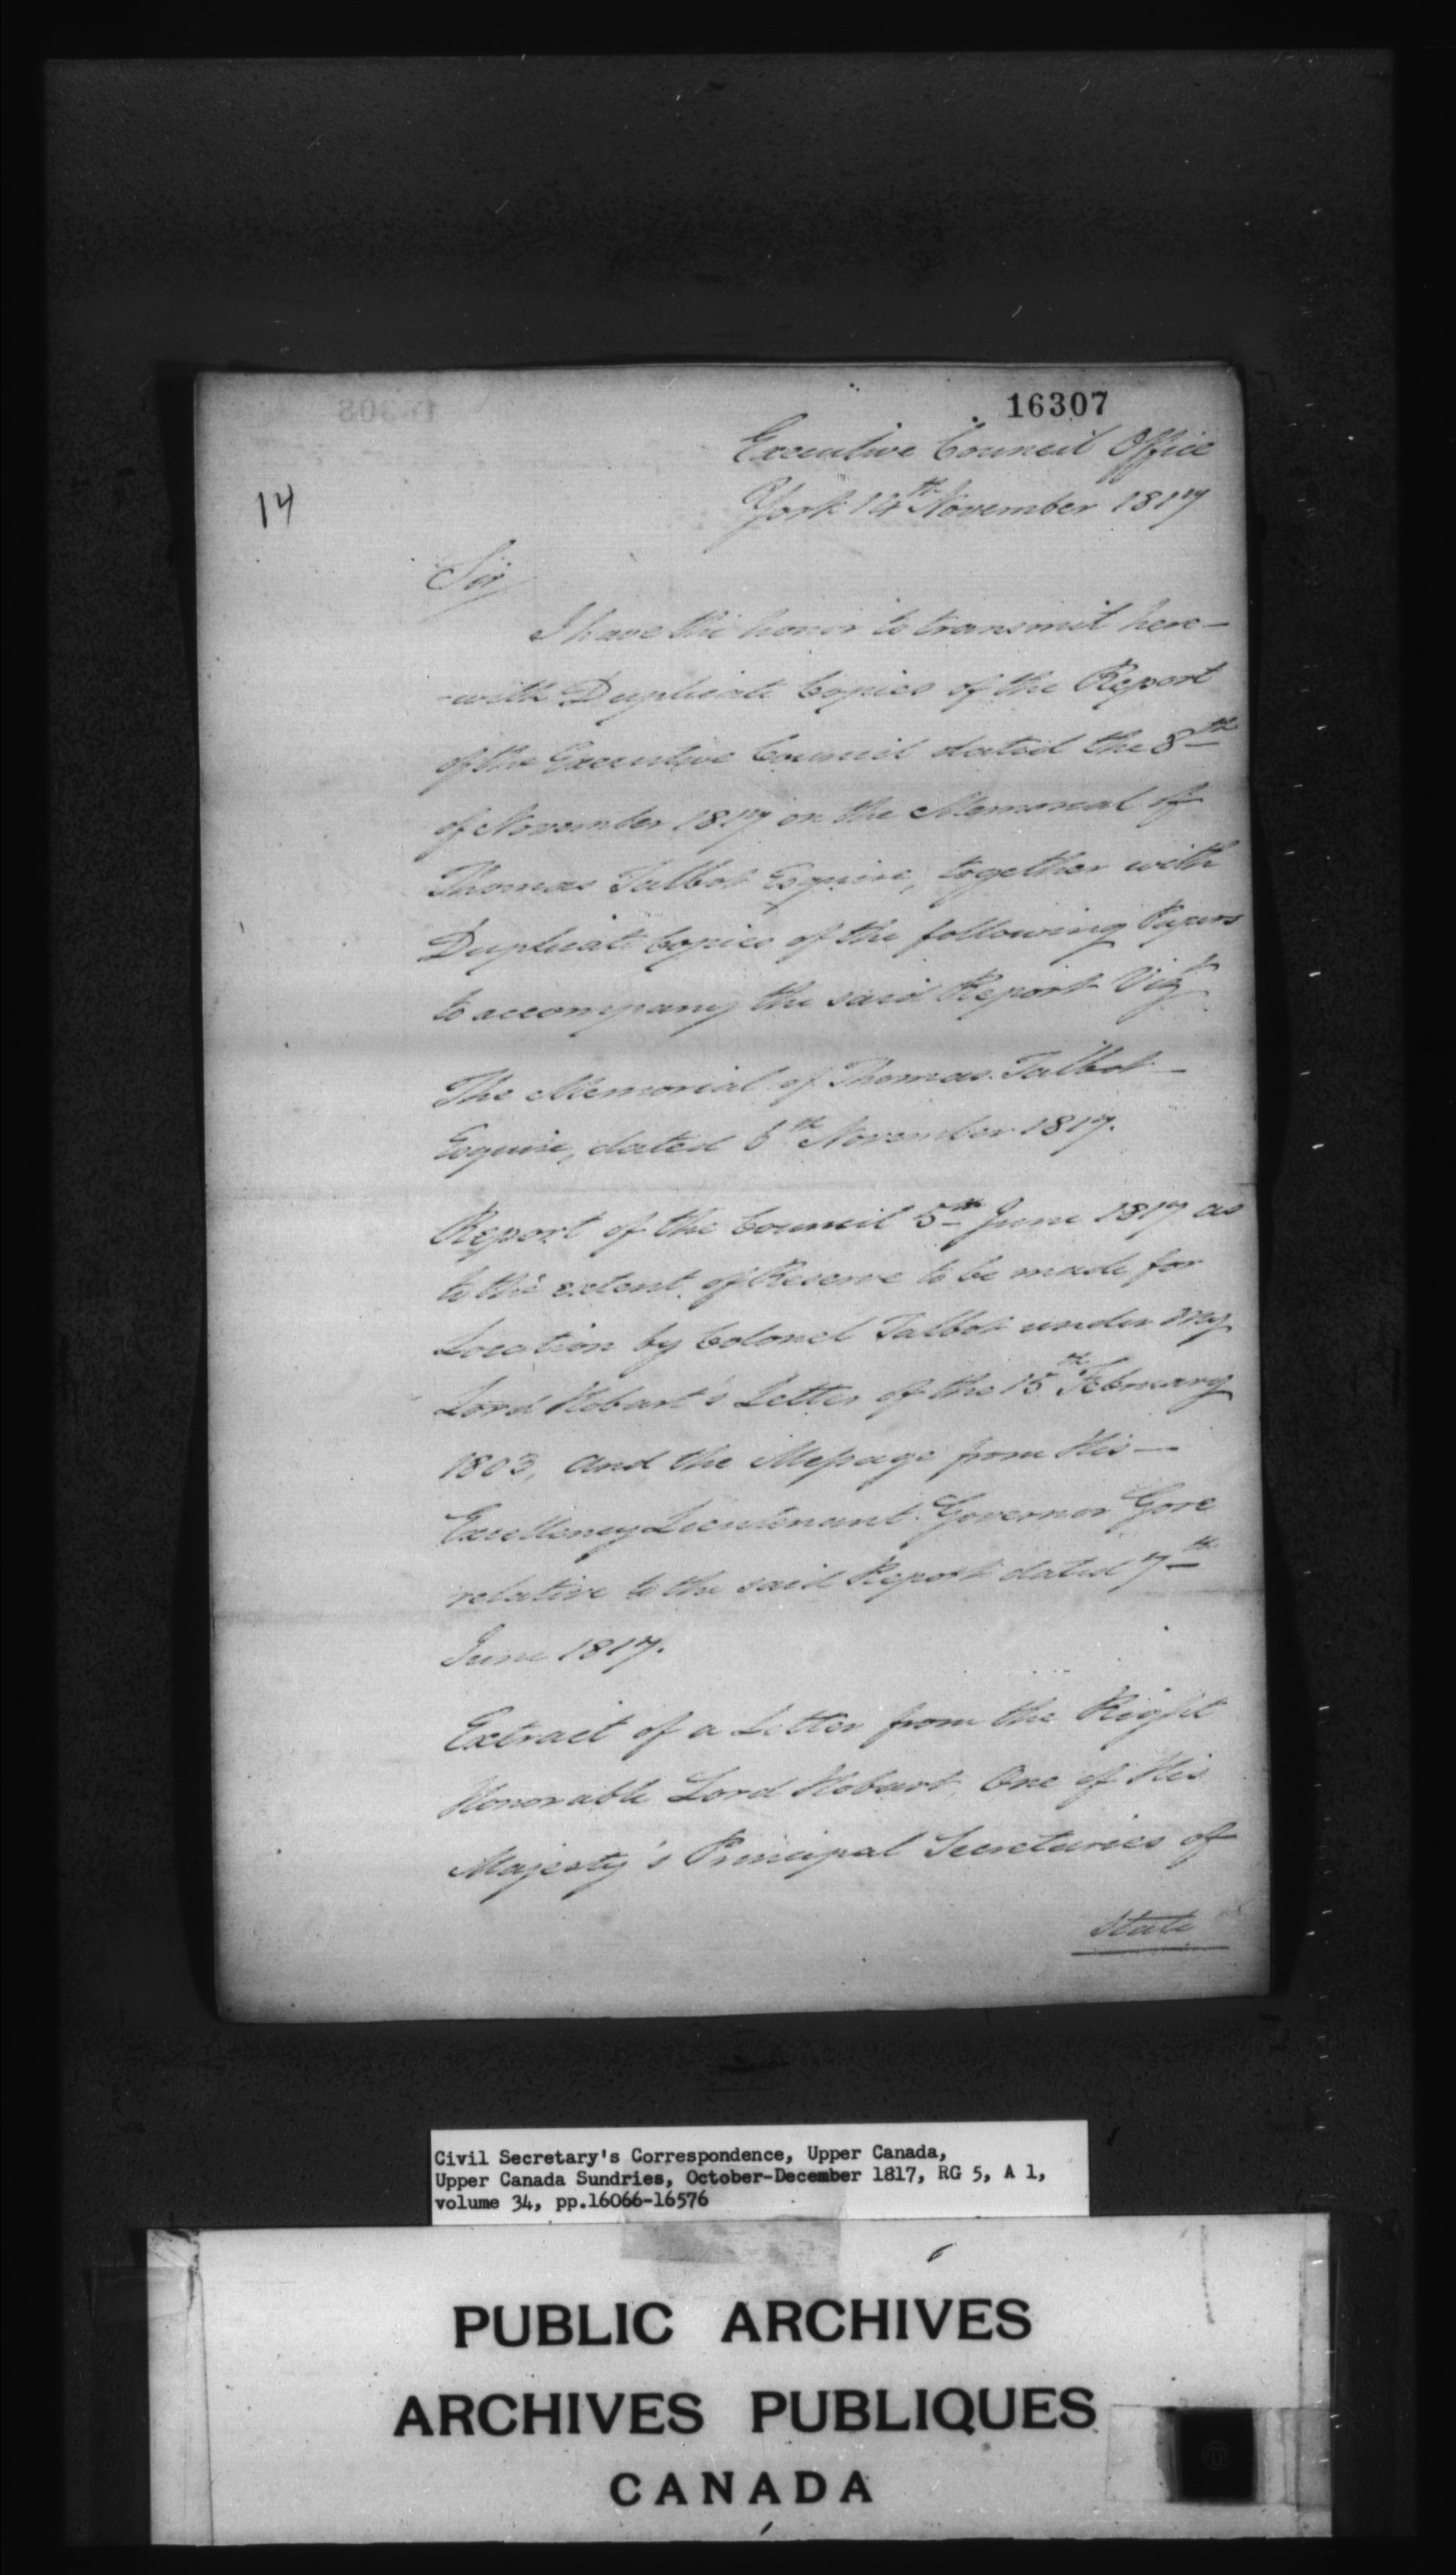 16307
Executive Council Office
York 14th November 1817
14
Sir
I have the honor to transmit here-
-with Duplicate Copies of the Report
of the Executive Council dated the 8th
of November 1817 on the Memorial of
Thomas Talbot Esquire, together with
Duplicate Copies of the following Papers
to accompany the said Report Vizt
The Memorial of Thomas Talbot-
Esquire, dated 6th November 1817.
Report of the Council 5th June 1817 as
to the extent of Reserve to be made for
Location by Colonel Talbot under my
Lord Hobart's Letter of the 15th February
1803, and the Message from His-
Excellency Lieutenant Governor Gore
relative to the said Report dated 7th
June 1817.
Extract of a Letter from the Right
Honorable Lord Hobart One of His
Majesty's Principal Secretaries of
State
Civil Secretary's Correspondence, Upper Canada,
Upper Canada Sundries, October-December 1817, RG 5, A 1,
volume 34, pp.16066-16576
PUBLIC ARCHIVES
ARCHIVES PUBLIQUES
CANADA